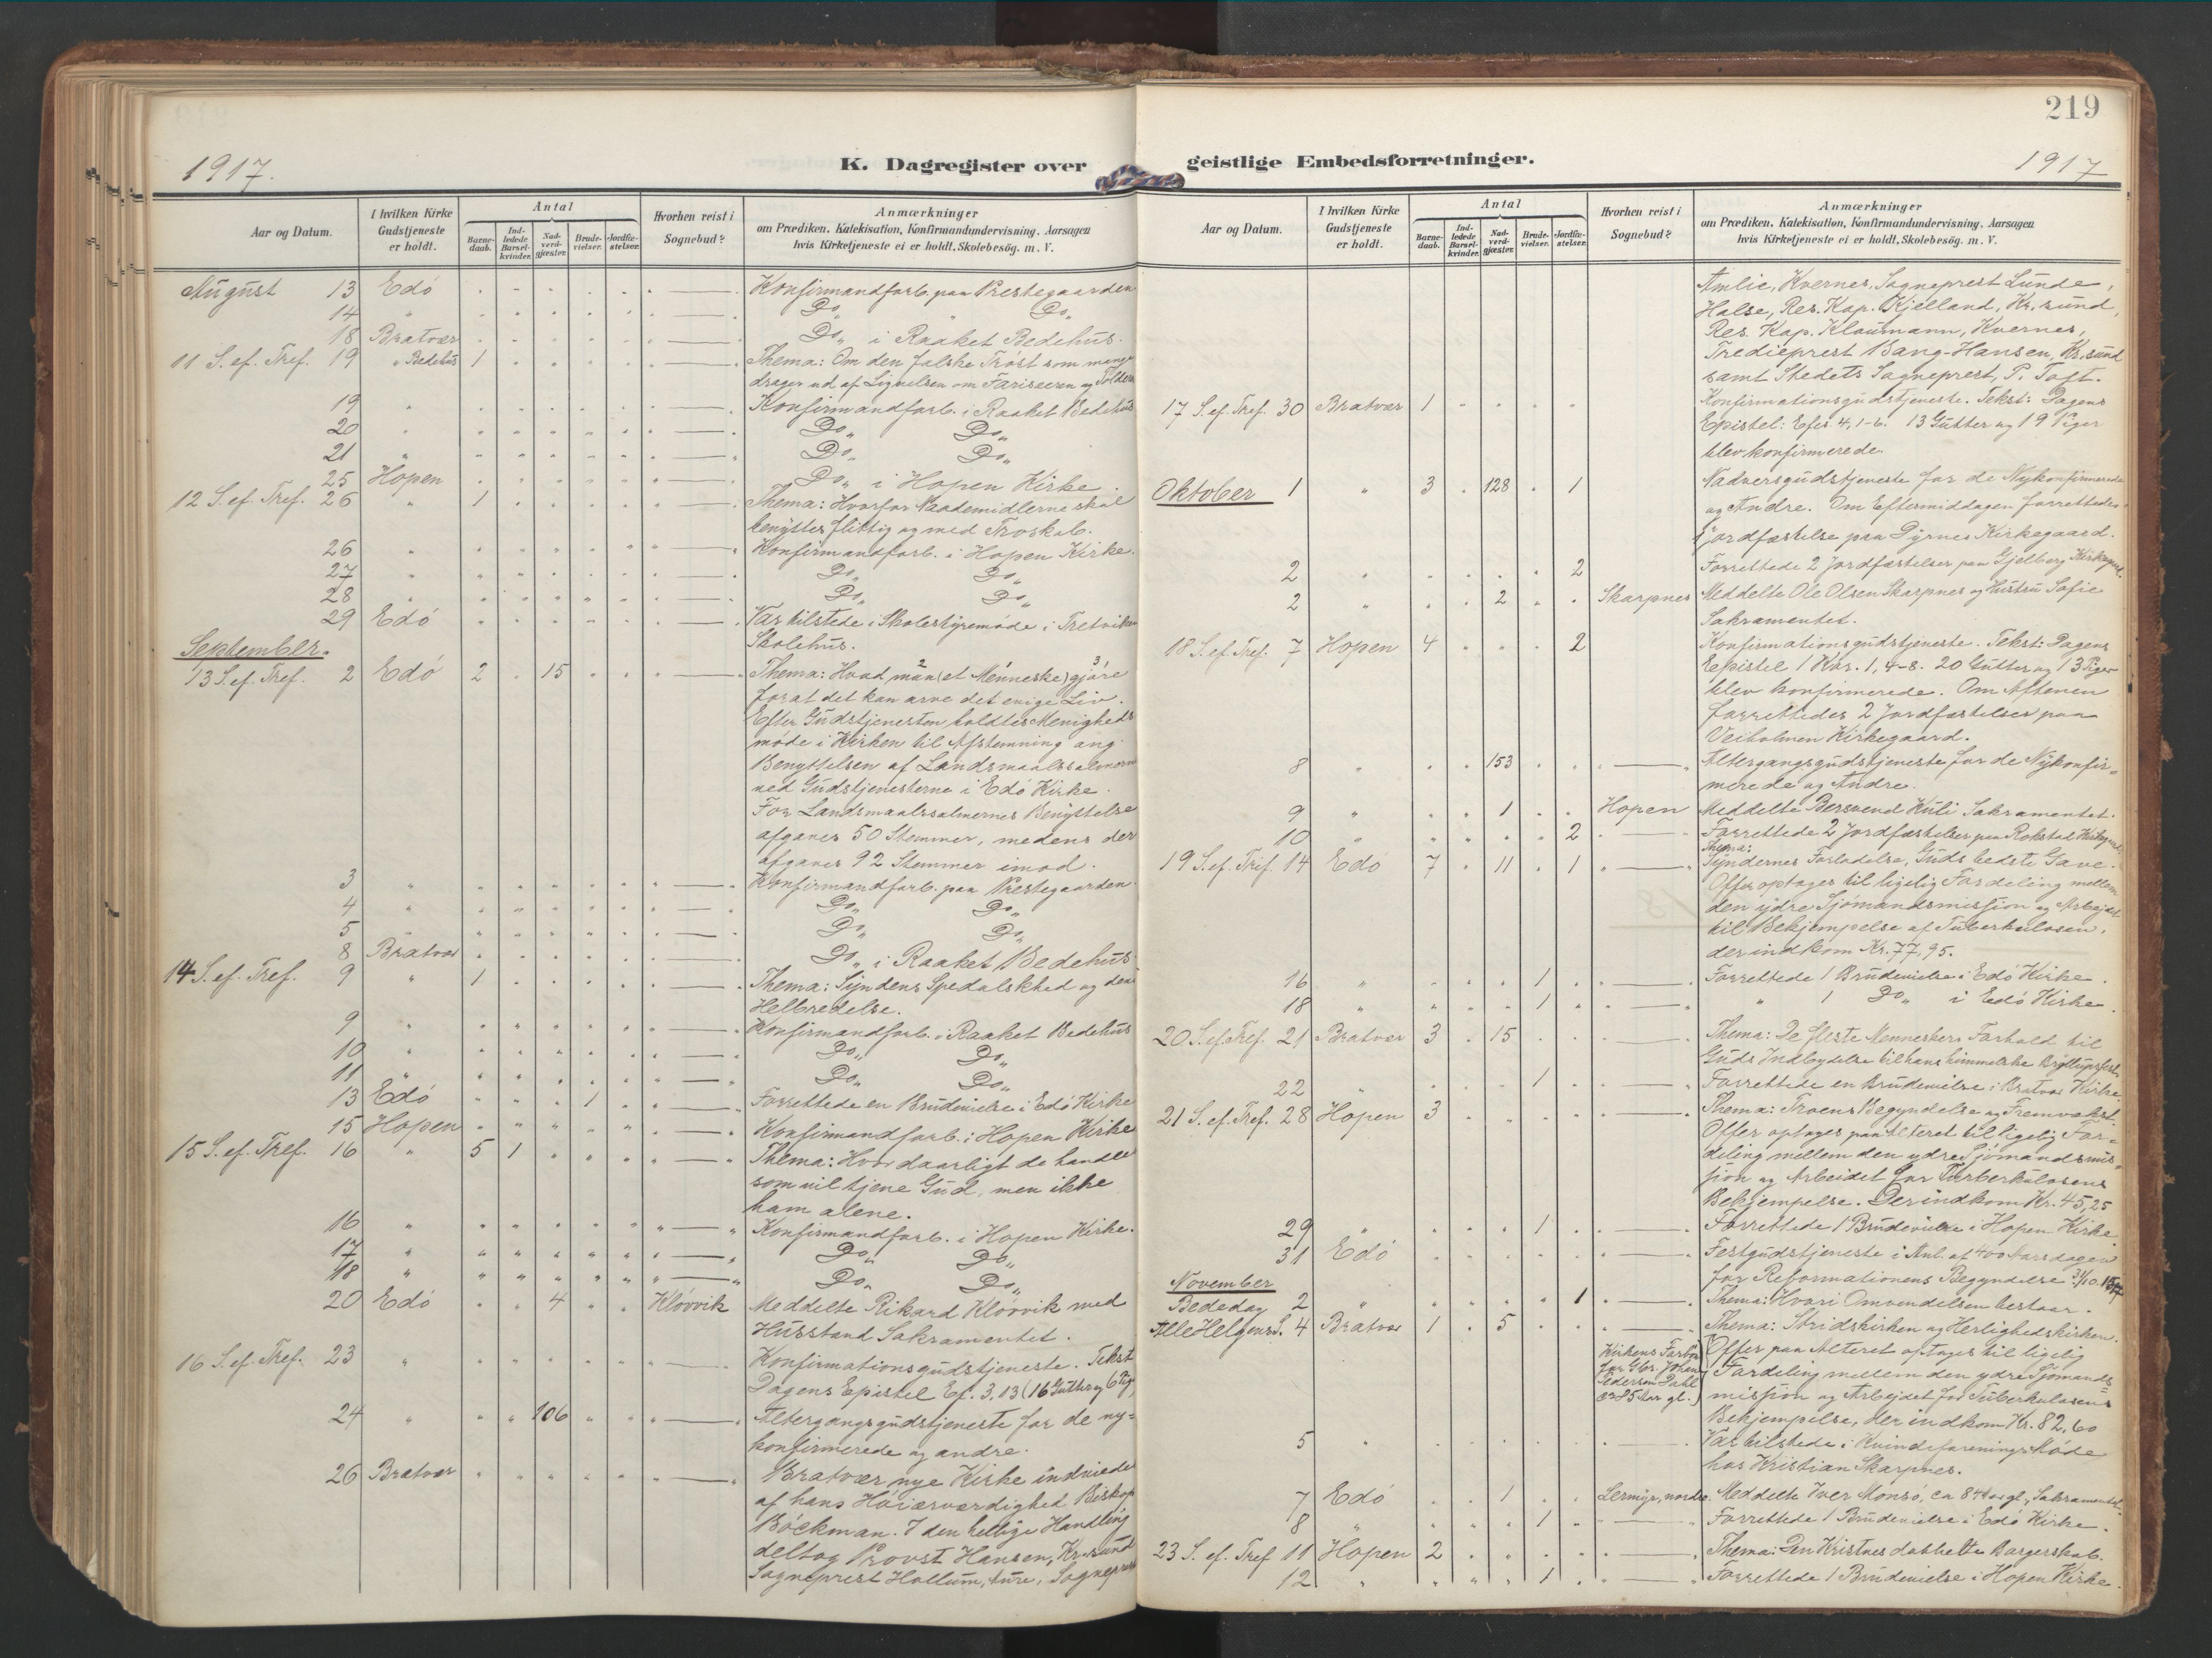 219
1917.
K. Dagregister over
geistlige Embedsforretninger.
1917
Aar og Datum.
I hvilken Kirke Gudstjeneste er holdt.
Antal
Barne-daab.
Ind-ledede Barsel-kvinder.
Nad-verd-gjæster.
Brude-vielser.
Jordfæ-stelser.
Hvorhen reist i Sognebud?
Anmærkninger
om Prædiken, Katekisation, Konfirmandundervisning, Aarsagen
hvis Kirketjeneste ei er holdt, Skolebesög. m. V.
August 13 Edö Konfirmandforb. paa Prestegaarden
14 " Do„ Do„
18 Bratvær Do„ i Raaket Bedehus.
11 S. ef. Tref. 19 " Bedehus 1 Thema: Om den falske Tröst som mange
drager ud af Lignelsen om Fariseeren og Tolderen
19 " Konfirmandforb. i Raaket Bedehus
20 " Do„ Do„
21 " Do„ Do„
25 Hopen Do„ i Hopen Kirke.
12 S. ef. Tref. 26 " 1 Thema: Hvorfor Naademidlerne skal
benyttes flittig og med Troskab.
26 " Konfirmandforb. i Hopen Kirke.
27 " Do„ Do„
28 " Do„ Do„
29 Edö Var tilstede i Skolestyremöde i Tretviken
Skolehus.
September.
13 S. ef. Tref. 2 Edö 2 15 Thema: Hvad maa (et Menneske) gjöre
forat det kan arve det evige Liv.
Efter Gudstjenesten holdtes Menigheds
möde i Kirken til Afstemning ang.
Benyttelsen af Landsmaalssalmerne
ved Gudstjenesterne i Edö Kirke.
For Landsmaalssalmernes Benyttelse
afgaves 50 Stemmer, medens der
afgaves 92 Stemmer imod.
3 " Konfirmandforb. paa Prestegaarden.
4 " Do„ Do„
5 " Do„ Do„
8 Bratvær Do„ i Raaket Bedehus
14 S. ef. Tref. 9 " 1 Thema: Syndens Spedalskhed og dens
Helbredelse.
9 " Konfirmandforb. i Raaket Bedehus
10 " Do„ Do„
11 " Do„ Do„
13 Edö 1 Forrettede en Brudevielse i Edö Kirke
15 Hopen Konfirmandforb. i Hopen Kirke
15 S. ef. Tref. 16 " 5 1 Thema: Hvor daarligt de handler
som vil tjene Gud, men ikke
ham alene.
16 " Konfirmandforb. i Hopen Kirke.
17 " Do„ Do„
18 " Do„ Do„
20 Edö 4 Klövvik Meddelte Rikard Klövvik med
Husstand Sakramentet.
16 S. ef. Tref. 23 " Konfirmationsgudstjeneste. Tekst
Dagens Epistel Ef. 3, 13 (16 Gutter og 6 Pig.)
24 " 106 Altergangsgudstjeneste for de ny-
konfirmerede og andre.
26 Bratvær Bratvær nye Kirke indviedes
af hans Höiærværdighed Biskop
Böckman. I den hellige Handling
deltog Provst Hansen, Kr.sund
Sogneprest Hollum, Sogneprest
Aar og Datum.
I hvilken Kirke Gudstjeneste er holdt.
Antal
Barne-daab.
Ind-ledede Barsel-kvinder.
Nad-verd-gjæster.
Brude-vielser.
Jordfæ-stelser.
Hvorhen reist i Sognebud?
Anmærkninger
om Prædiken, Katekisation, Konfirmandundervisning, Aarsagen
hvis Kirketjeneste ei er holdt, Skolebesög. m. V.
Amlie, Kvernes, Sogneprest Lunde,
Halse, Res. Kap. Kjelland, Kr.sund,
Res. Kap. Klaumann, Kvernes,
Tredieprest Bang-Hansen, Kr.sund
samt Stedets Sogneprest, P. Toft.
17 S. ef. Tref. 30 Bratvær 1 Konfirmationsgudstjeneste. Tekst: Dagens
Epistel: Efes 4, 1-6. 13 Gutter og 19 Piger
blev konfirmerede.
Oktober 1 " 3 128 1 Nadversgudstjeneste for de Nykonfirmerede
og Andre. Om Eftermiddagen forrettedes
1 jordfæstelse paa Dyrnes Kirkegaard.
2 " 2 Forrettede 2 Jordfæstelser paa Gjelberg Kirkegaard.
2 " 2 Skarpnes Meddelte Ole Olsen Skarpnes og Hustru Sofie
Sakramentet.
18 S. ef. Tref. 7 Hopen 4 2 Konfirmationsgudstjeneste. Tekst: Dagens
Epistel 1 Kor. 1, 4-8. 20 Gutter og 13 Piger
blev konfirmerede. Om Aftenen
forrettedes 2 Jordfæstelser paa
Veiholmen Kirkegaard.
8 " 153 Altergangsgudstjeneste for de Nykonfir-
merede og Andre.
9 " 1 Hopen Meddelte Bersvend Kuli Sakramentet.
10 " 2 Forrettede 2 Jordfæstelser paa Rokstad Kirkegaard.
19 S. ef. Tref. 14 Edö 7 11 1 Thema: Syndernes Forladelse, Guds bedste Gave.
Offer optoges til ligelig Fordeling mellem
den ydre Sjömandsmission og Arbejdet
til Bekjempelse af Tuberkulosen,
der indkom Kr. 77,95.
16 " 1 Forrettede 1 Brudevielse i Edö Kirke.
18 " 1 " 1 Do„ i Edö Kirke.
20 S. ef. Tref. 21 Bratvær 3 15 Thema: De fleste Menneskers Forhold til
Guds Indbydelse til hans himmelske Bryllupsfest.
22 " 1 Forrettede en Brudevielse i Bratvær Kirke.
21 S. ef. Tref. 28 Hopen 3 Thema: Troens Begyndelse og Fremvækst.
Offer optoges paa Alteret til ligelig For-
deling mellem den ydre Sjömandsmis-
sion og Arbeidet for Tuberkulosens
Bekjempelse. Der indkom Kr. 45,25
29 " 1 Forrettede 1 Brudevielse i Hopen Kirke.
31 Edö Festgudstjeneste i Anl. af 400 Aarsdagen
for Reformationens Begyndelse 31/10 1517
November
Bededag 2 " 1 Thema: Hvori Omvendelsen bestaar.
Alle Helgens S. 4 Bratvær 1 5 Thema: Stridskirken og Herlighedskirken.
Kirkens Forbön for Gbr. Johan Pederson Dahl ca 85 Aar gl.)
Offer paa Alteret optoges til ligelig
Fordeling mellem den ydre Sjömands-
mission og Arbejdet for Tuberkulosens
Bekjempelse, der indkom Kr. 82,60
5 " Var tilstede i Kvindeforenings Möde
hos Kristian Skarpnes.
7 Edö 1 Lermyr, nordre. Meddelte Iver Monsö, ca 84 Aar gl., Sakramentet.
8 " 1 Forrettede 1 Brudevielse i Edö Kirke.
23 S. ef. Tref 11 Hopen 2 Thema: Den Kristnes dobbelte Borgerskab.
12 " 1 Forrettede 1 Brudevielse i Hopen Kirke.